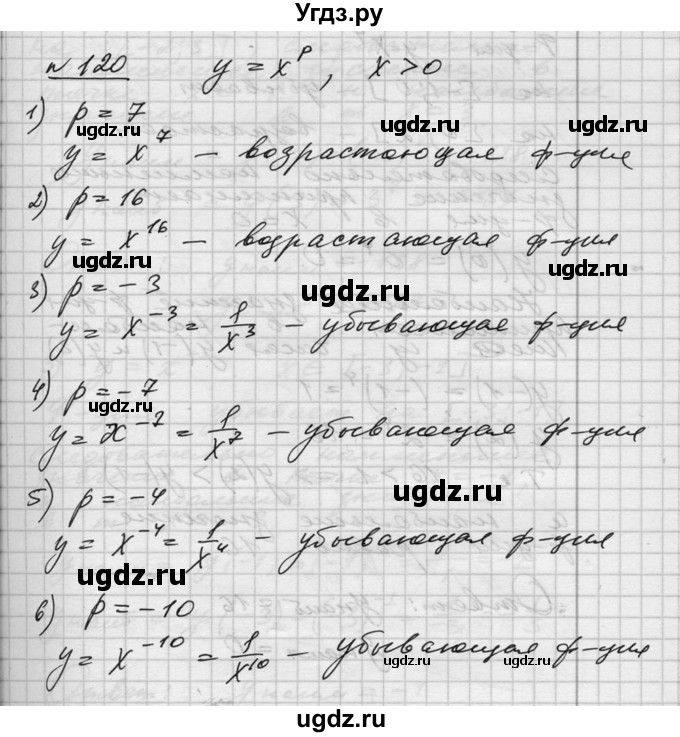 Угдз.ру
№120 y = x^p, x > 0
1) p = 7
ugdz.ru ugdz.ru
y = x^7 – возрастающая ф-ция
2) p = 16
y = x^16 – возрастающая ф-ция
ugdz.ru ugdz.ru
3) p = -3
ugdz.ru
y = x^-3 = 1/x^3 – убывающая ф-ция
4) p = -7
ugdz.ru
y = x^-7 = 1/x^7 – убывающая ф-ция
ugdz.ru
5) p = -4
ugdz.ru
y = x^-4 = 1/x^4 – убывающая ф-ция
ugdz.ru
6) p = -10
ugdz.ru
y = x^-10 = 1/x^10 – убывающая ф-ция
ugdz.ru ugdz.ru
ugdz.ru